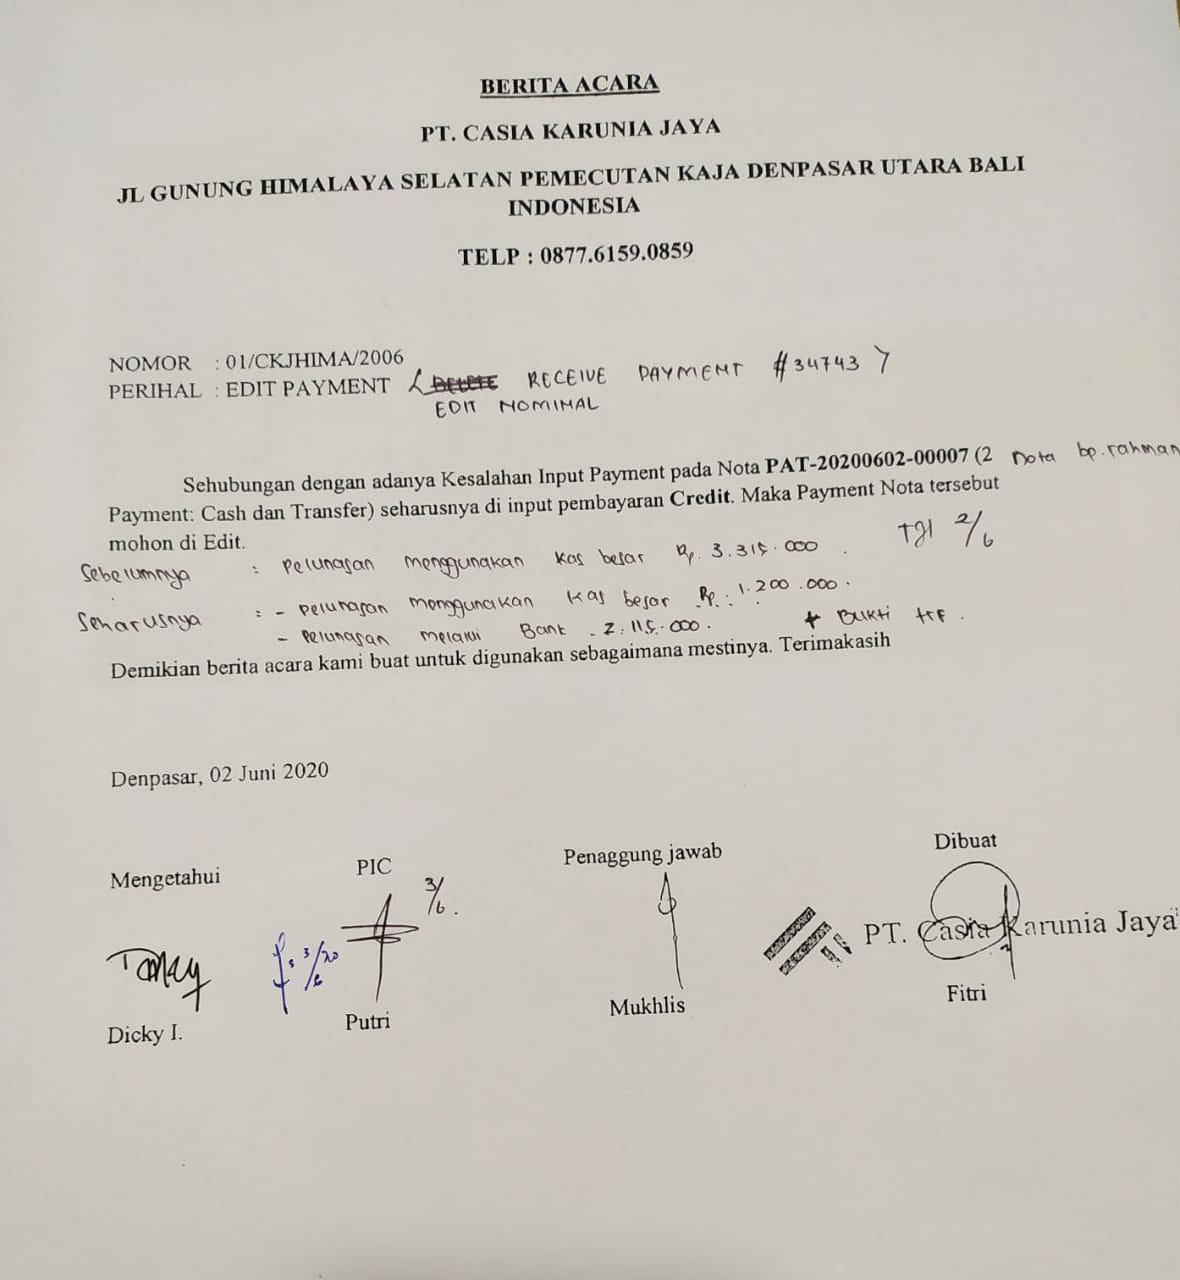 BERITA ACARA
PT. CASIA KARUNIA JAYA
JL GUNUNG HIMALAYA SELATAN PEMECUTAN KAJA DENPASAR UTARA BALI
INDONESIA
TELP : 0877.6159.0859
NOMOR : 01/CKJHIMA/2006
PERIHAL : EDIT PAYMENT ( DELETE RECEIVE PAYMENT #34743 )
EDIT NOMINAL
Sehubungan dengan adanya Kesalahan Input Payment pada Nota PAT-20200602-00007 (2 Nota bp.rahman
Payment: Cash dan Transfer) seharusnya di input pembayaran Credit. Maka Payment Nota tersebut
mohon di Edit.
Tgl 2/6
Sebelumnya : Pelunasan menggunakan kas besar Rp. 3.315.000.
Seharusnya : - Pelunasan menggunakan kas besar Rp. : 1.200.000.
- Pelunasan melalui Bank 2.115.000. + Bukti trf.
Demikian berita acara kami buat untuk digunakan sebagaimana mestinya. Terimakasih
Denpasar, 02 Juni 2020
Mengetahui PIC Penaggung jawab Dibuat
3/6.
3/6/20
PT. Casia Karunia Jaya
Dicky I. Putri Mukhlis Fitri